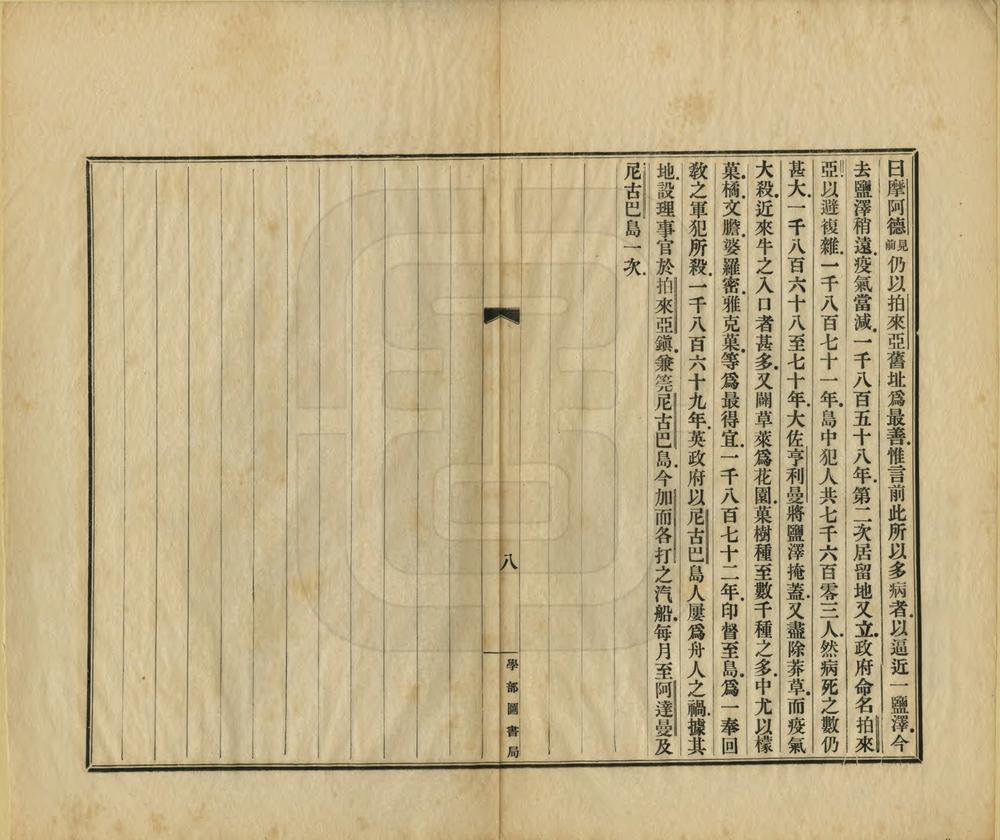 曰摩阿德見前仍以拍來亞舊址爲最善惟言前此所以多病者以逼近一鹽澤今
去鹽澤稍遠疫氣當減一千八百五十八年第二次居留地又立政府命名拍來
亞以避複雜一千八百七十一年島中犯人共七千六百零三人然病死之數仍
甚大一千八百六十八至七十年大佐亨利曼將鹽澤掩蓋又盡除莽草而疫氣
大殺近來牛之入口者甚多又闢草萊爲花園菓樹種至數千種之多中尤以檬
菓橘文膽婆羅密雅克菓等爲最得宜一千八百七十二年印督至島爲一奉回
敎之軍犯所殺一千八百六十九年英政府以尼古巴島人屢爲舟人之禍據其
地設理事官於拍來亞鎭兼筦尼古巴島今加而各打之汽船每月至阿達曼及
尼古巴島一次
八
學部圖書局